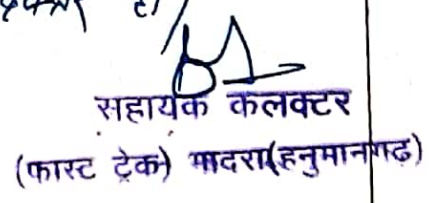 सहायक कलक्टर
(फास्ट ट्रेक) भादरा(हनुमानगढ़)